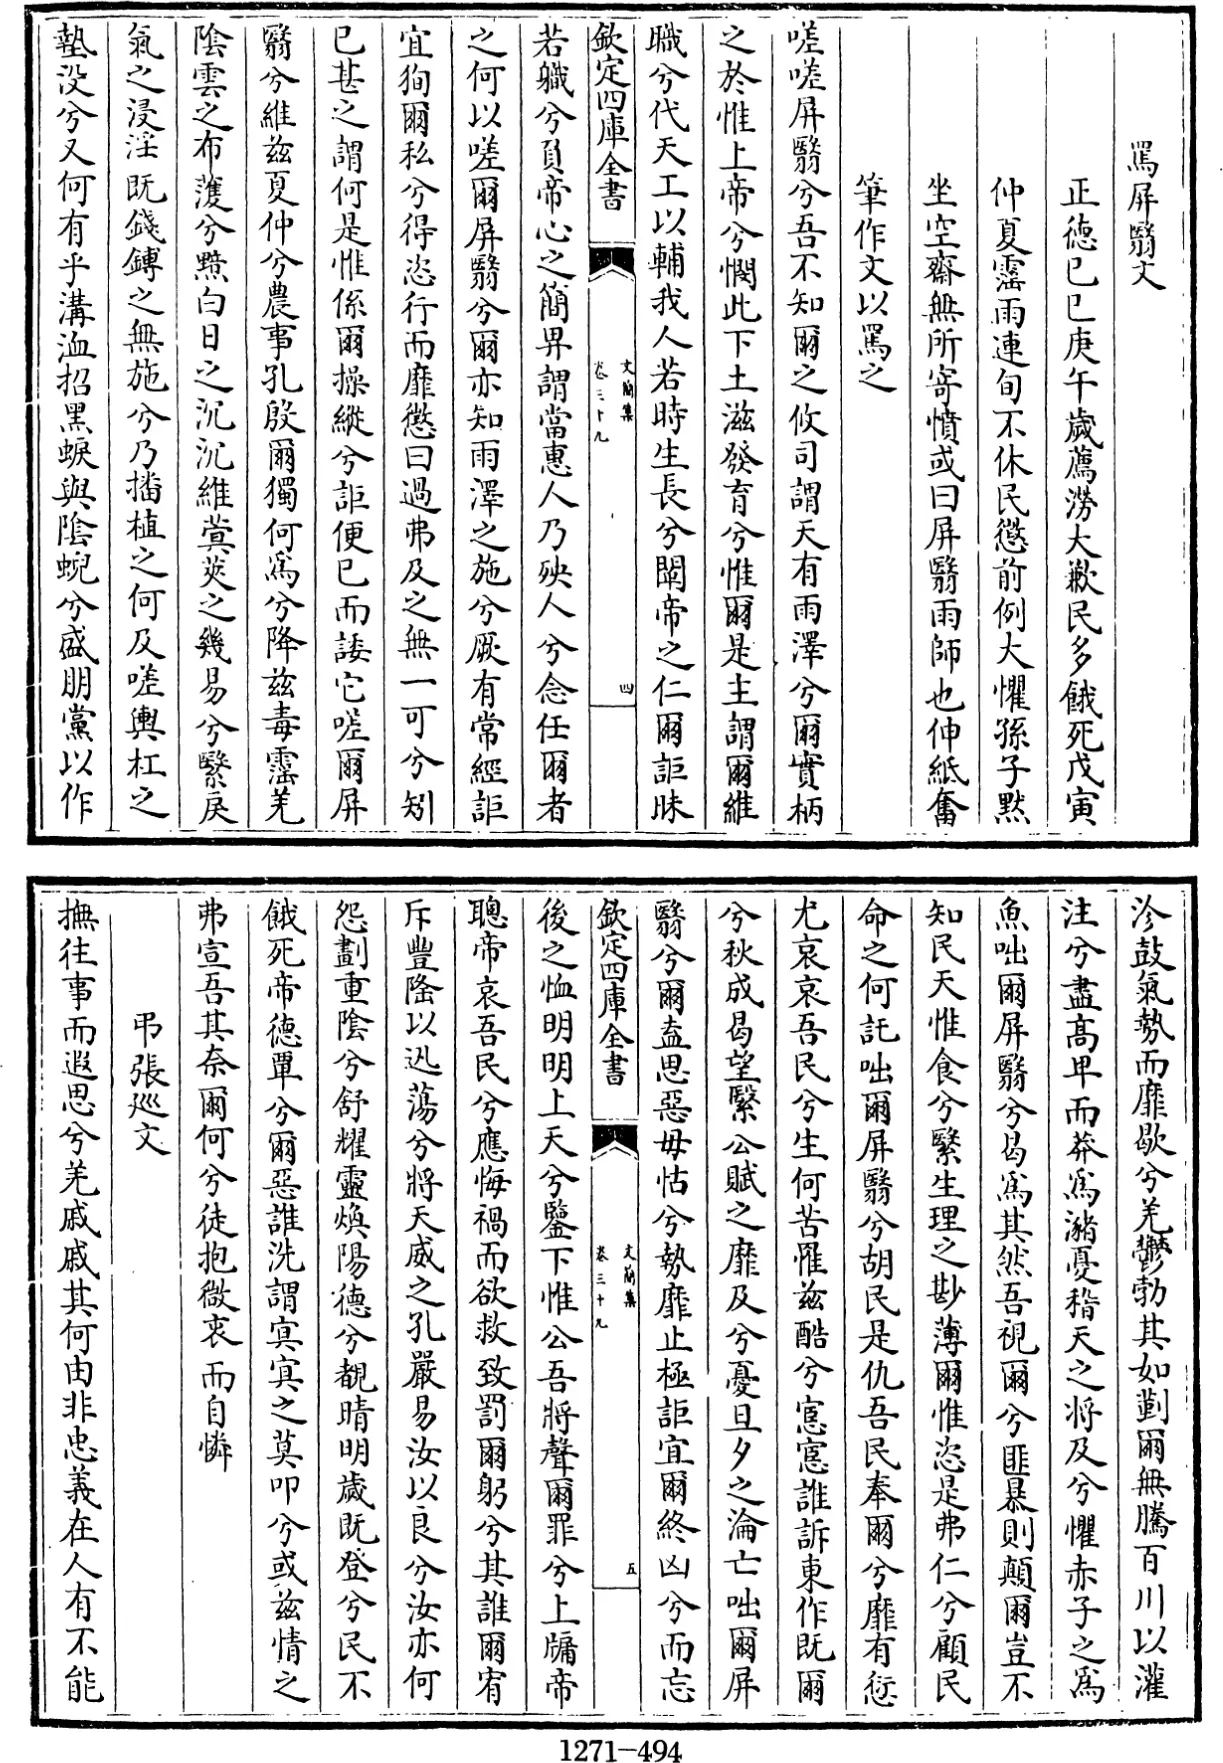 罵屏翳文
正德己巳庚午歲薦澇大歉民多餓死戊寅
仲夏霪雨連旬不休民懲前例大懼孫子默
坐空齋無所寄憤或曰屏翳雨師也伸紙奮
筆作文以罵之
嗟嗟屏翳兮吾不知爾之攸司謂天有雨澤兮爾實柄
之於惟上帝兮憫此下土滋發育兮惟爾是主謂爾維
職兮代天工以輔我人若時生長兮閟帝之仁爾詎昧
欽定四庫全書
文簡集
卷三十九
四
若職兮負帝心之簡畀謂當惠人乃殃人兮念任爾者
之何以嗟爾屏翳兮爾亦知雨澤之施兮厥有常經詎
宜狥爾私兮得恣行而靡懲曰過弗及之無一可兮矧
已甚之謂何是惟係爾操縱兮詎便已而諉它嗟爾屏
翳兮維兹夏仲兮農事孔殷爾獨何為兮降兹毒霪羌
陰雲之布濩兮黲白日之沉沉維蓂莢之幾易兮繄戾
氣之浸淫既錢鎛之無施兮乃播植之何及嗟輿杠之
墊没兮又何有乎溝洫招黑蜧與陰蜺兮盛朋黨以作
沴鼓氣勢而靡歇兮羌鬱勃其如劃爾無騰百川以灌
注兮盡高卑而莽為瀦憂稽天之將及兮懼赤子之為
魚咄爾屏翳兮曷為其然吾視爾兮匪暴則顛爾豈不
知民天惟食兮繄生理之尠薄爾惟恣是弗仁兮顧民
命之何託咄爾屏翳兮胡民是仇吾民奉爾兮靡有愆
尤哀哀吾民兮生何苦罹兹酷兮寃寃誰訴東作既爾
兮秋成曷望繄公賦之靡及兮憂旦夕之淪亡咄爾屏
翳兮爾盍思惡毋怙兮勢靡止極詎宜爾終凶兮而忘
欽定四庫全書
文簡集
卷三十九
五
後之恤明明上天兮鑒下惟公吾將聲爾罪兮上牖帝
聰帝哀吾民兮應悔禍而欲救致罰爾躬兮其誰爾宥
斥豐隆以迅蕩兮將天威之孔嚴易汝以良兮汝亦何
怨劃重陰兮舒耀靈煥陽德兮覩晴明歲既登兮民不
餓死帝德單兮爾惡誰洗謂寘寘之莫叩兮或兹情之
弗宣吾其奈爾何兮徒抱微衷而自憐
弔張巡文
撫往事而遐思兮羌戚戚其何由非忠義在人有不能
1271-494